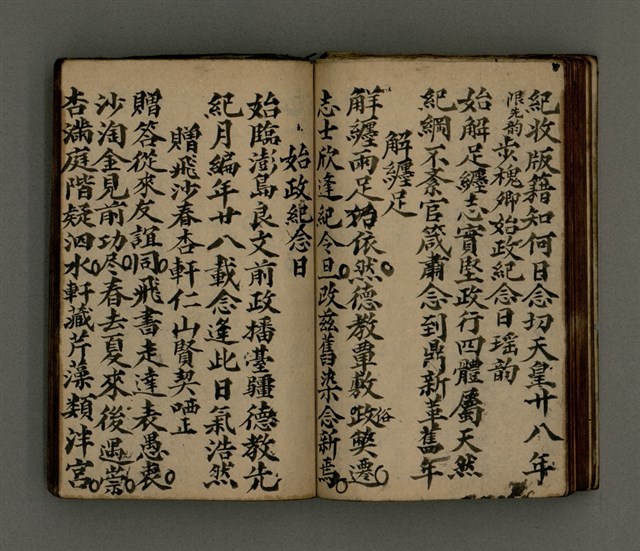 紀收版籍知何日念切天皇廿八年
限先韵步槐卿始政紀念日瑶韵
始解足纏志實堅政行四體屬天然
紀綱不紊官箴肅念到鼎新革舊年
解纏足
解纏兩足始依然德教覃敷政俗奐遷
志士欣逢紀念日政兹舊染念新焉
始政紀念日
始臨澎島良文前政播臺疆德教先
紀月編年廿八載念逢此日氣浩然
贈飛沙春杏軒仁山賢契哂正
贈答從來友誼同飛書走達表愚衷
沙淘金見前功尽春去夏來後遇崇
杏滿庭階疑泗水軒藏芹藻類泮宮